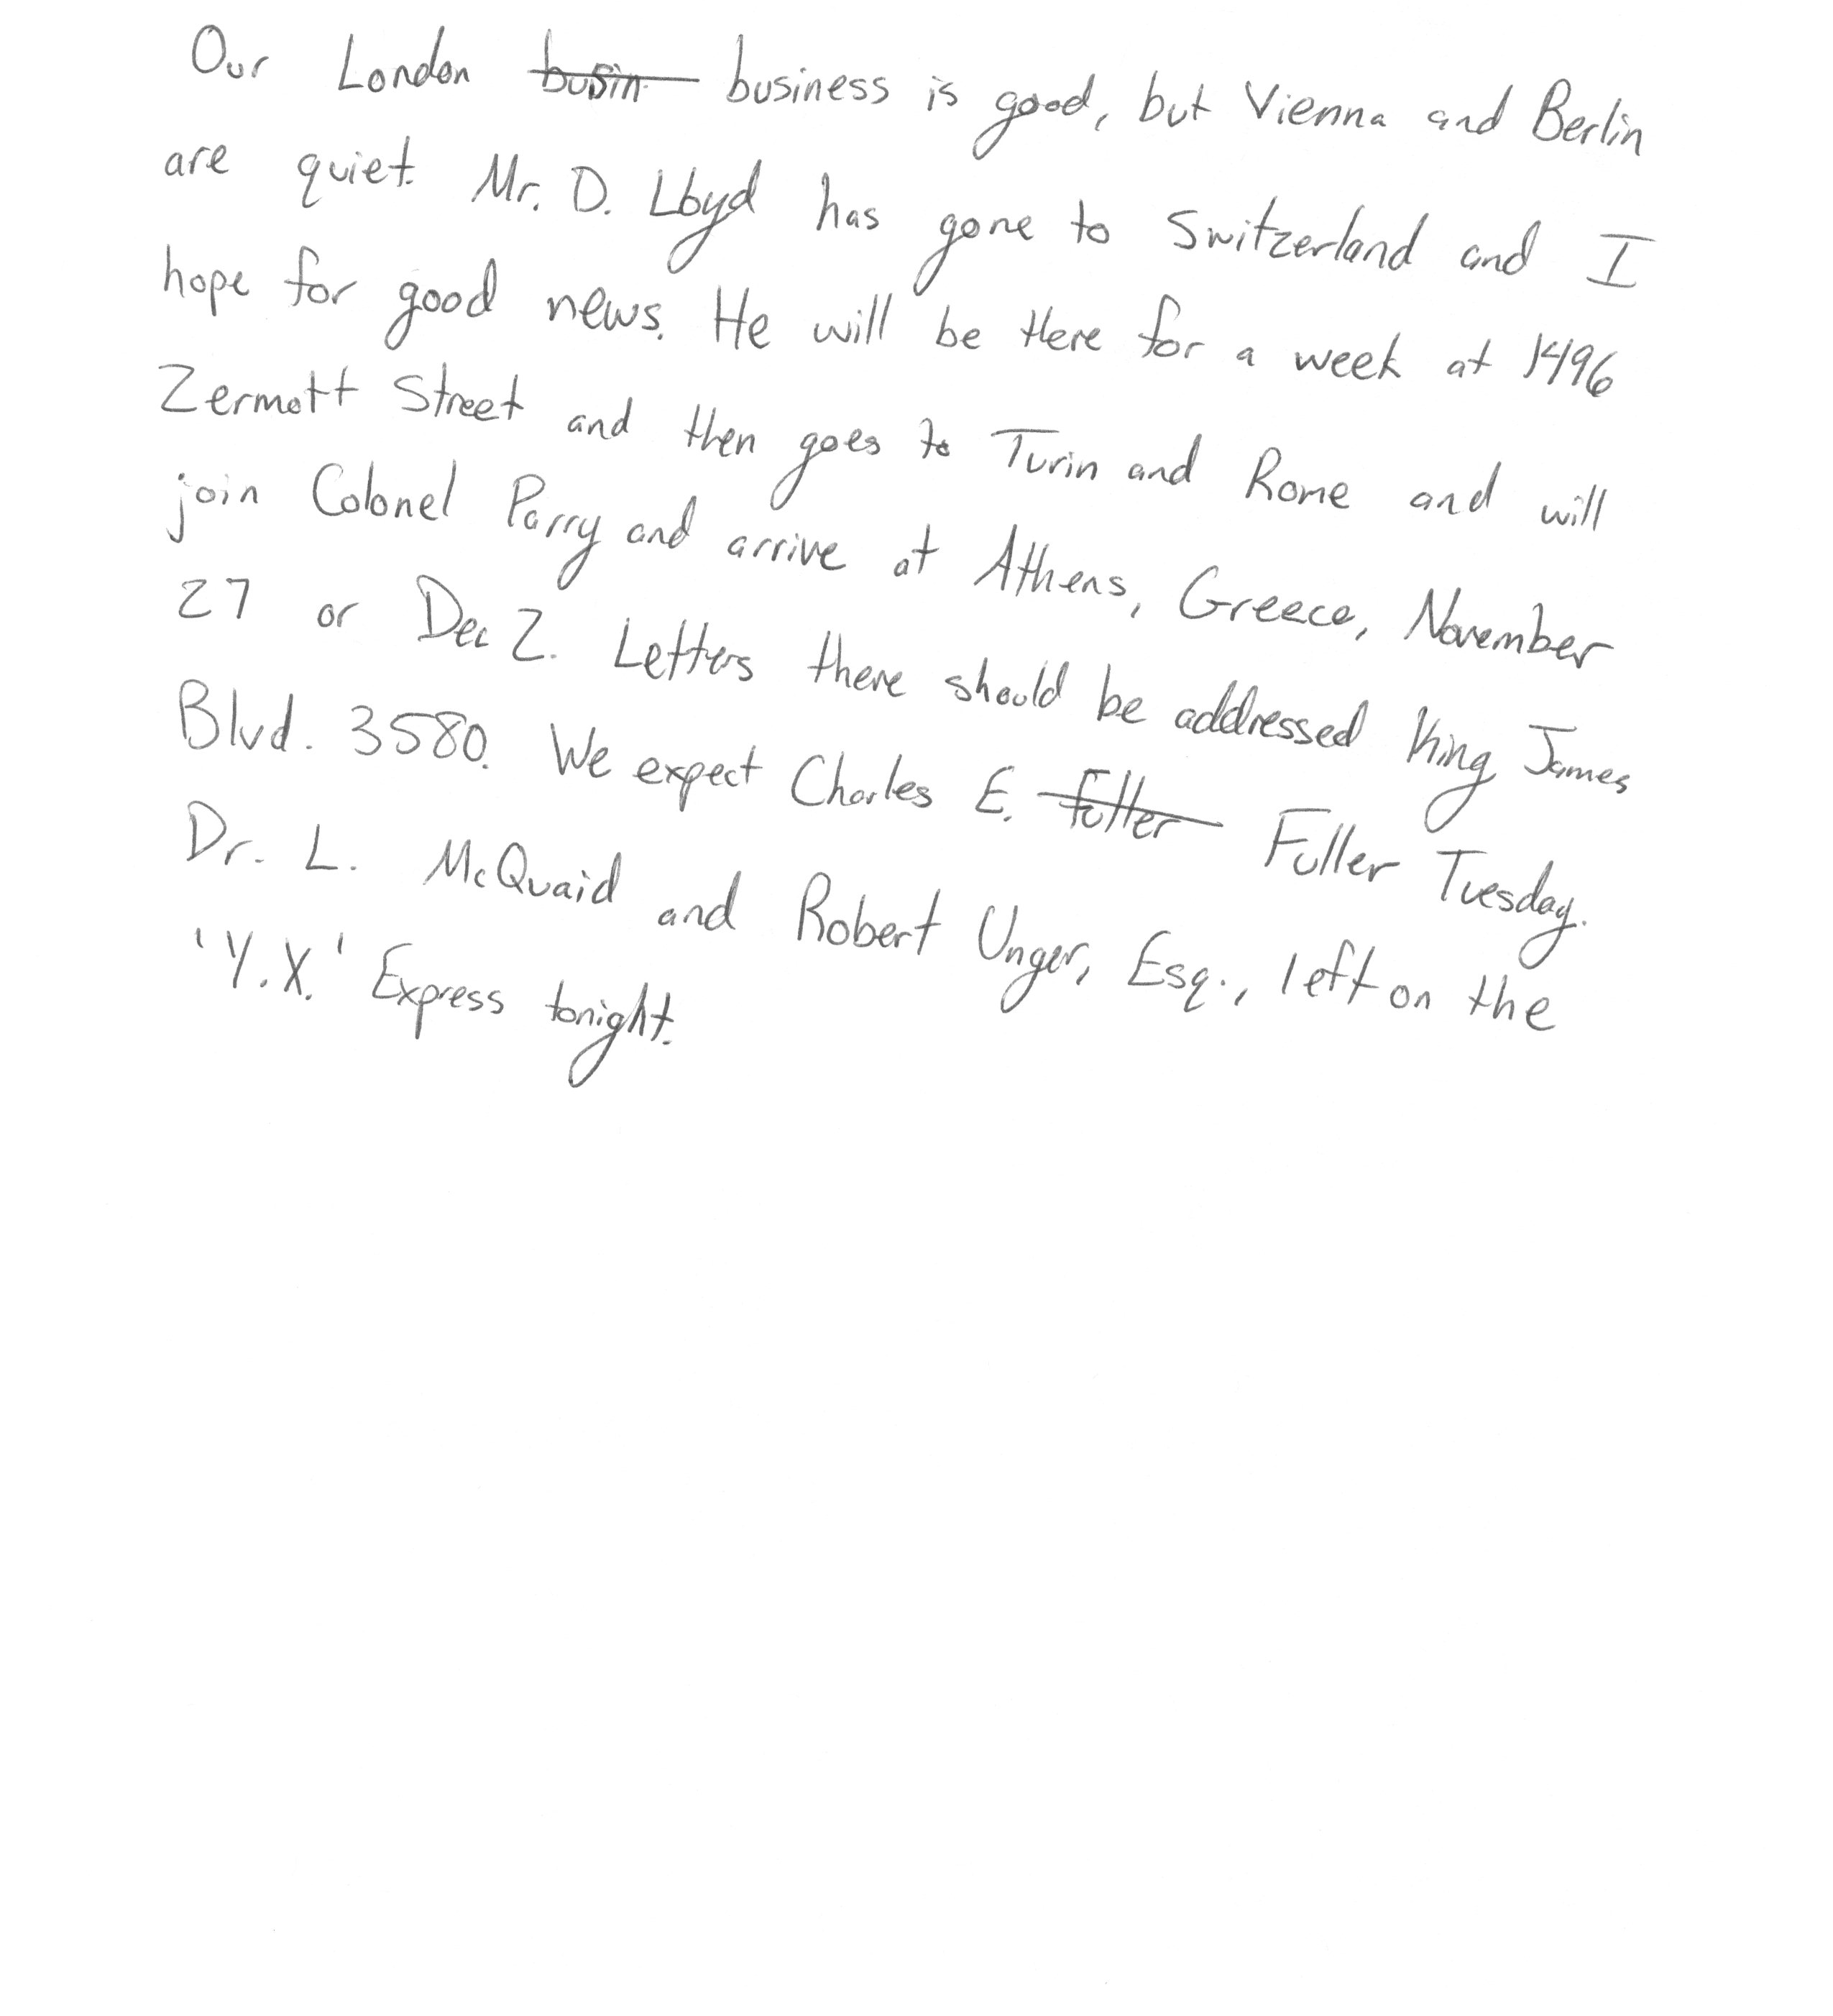 Our London busin business is good, but Vienna and Berlin
are quiet. Mr. D. Lloyd has gone to Switzerland and I
hope for good news. He will be there for a week at 1496
Zermott Street and then goes to Turin and Rome and will
join Colonel Parry and arrive at Athens, Greece, November
27 or Dec 2. Letters there should be addressed King James
Blvd. 3580. We expect Charles E. fuller Fuller Tuesday.
Dr. L. McQuaid and Robert Unger, Esq., left on the
'Y.X.' Express tonight.